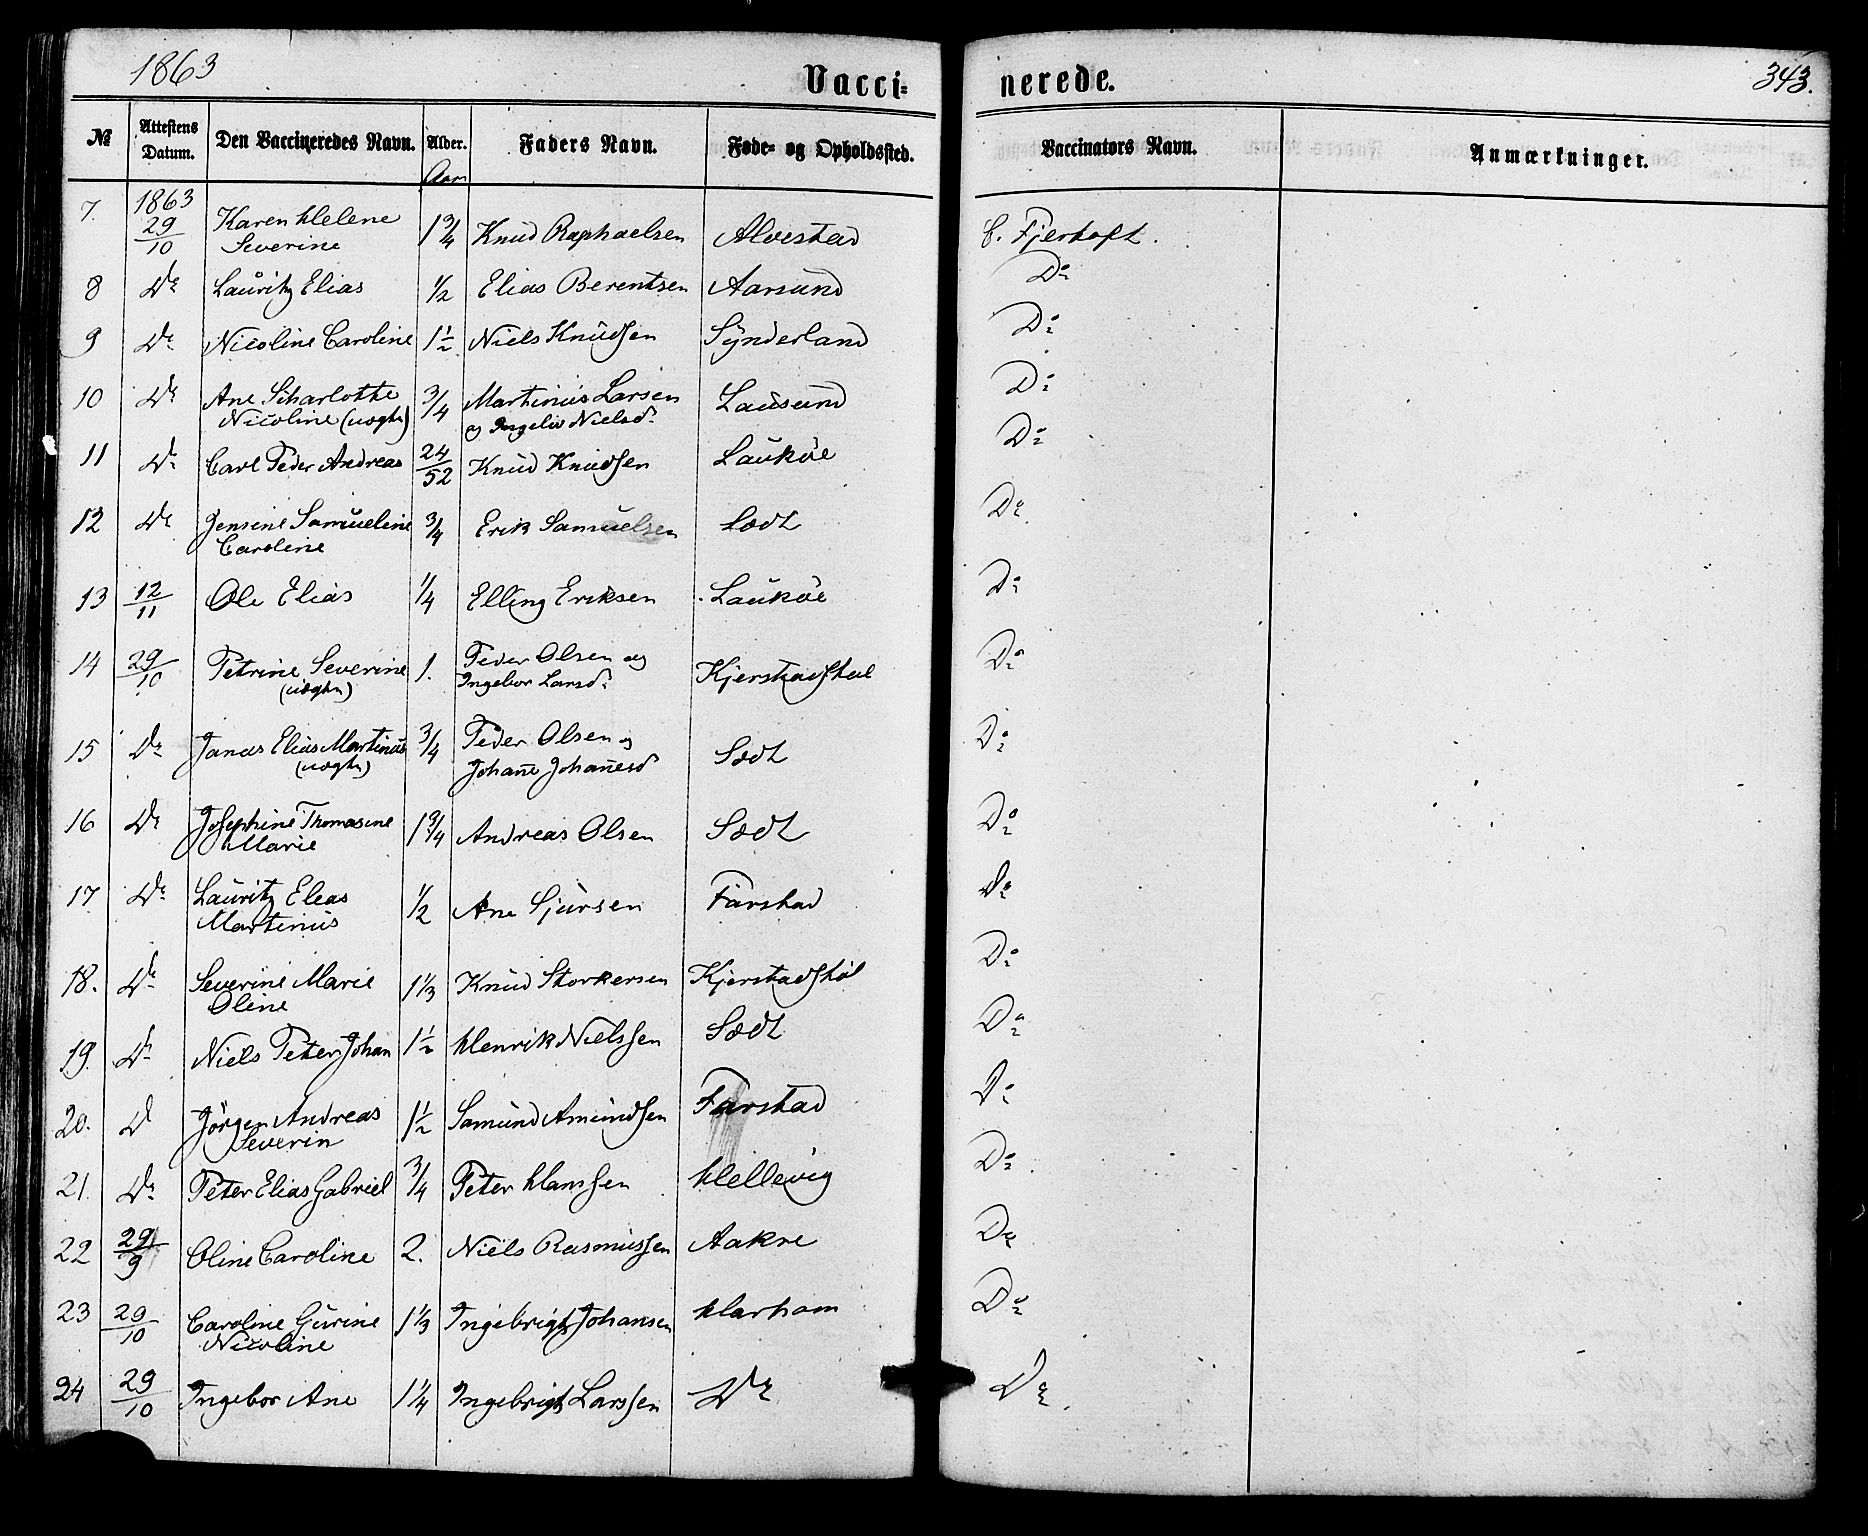 1863
Vacci= nerede.
343.
№ Attestens Datum. Den Vaccineredes Navn. Alder. Faders Navn. Føde= og Opholdssted. Vaccinators Navn. Anmærkninger.
Aar
7. 1863 29/10 Karen Helene Severine 1 3/4 Knud Raphaelsen Alvestad C. Fjertoft.
8 Do Lauritz Elias 1/2 Elias Berentsen Aarsund Do
9 Do Nicoline Caroline 1 1/2 Niels Knudsen Synderland Do
10 Do Ane Scharlotte 3/4 Martinus Larsen Lausund Do
Nicoline (uægte) og Ingeliv Nielsd.
11 Do Carl Peder Andreas 24/52 Knud Knudsen Laukøe Do
12 Do Jensine Samueline 3/4 Erik Samuelsen Sædt Do
Caroline
13 12/11 Ole Elias 1/4 Elling Eriksen Laukøe Do
14 29/10 Petrine Severine 1. Peder Olsen og Kjerstadstøl Do
(uægte) Ingebor Larsd.
15 Do Jonas Elias Martinus 3/4 Peder Olsen og Sædt Do
(uægte) Johane Johanesd
16 Do Josephine Thomasine 1 3/4 Andreas Olsen Sædt Do
Marie
17 Do Lauritz Eleas 1/2 Ane Sjursen Farstad Do
Martinus
18. Do Severine Marie 1 1/3 Knud Storkersen Kjerstadstøl Do
Oline
19. Do Niels Peter Johan 1 1/2 Henrik Nielssen Sædt Do
20. D Jørgen Andreas 1 1/2 Samund Amundsen Farstad Do
Severin
21. Do Peter Elias Gabriel 3/4 Peter Hanssen Hellevig Do
22 29/9 Oline Caroline 2. Niels Rasmussen Aakre Do
23 29/10 Caroline Gurine 1 1/3 Ingebrigt Johansen Harham Do
Nicoline
24 29/10 Ingebor Ane 1 1/4 Ingebrigt Larssen Do Do